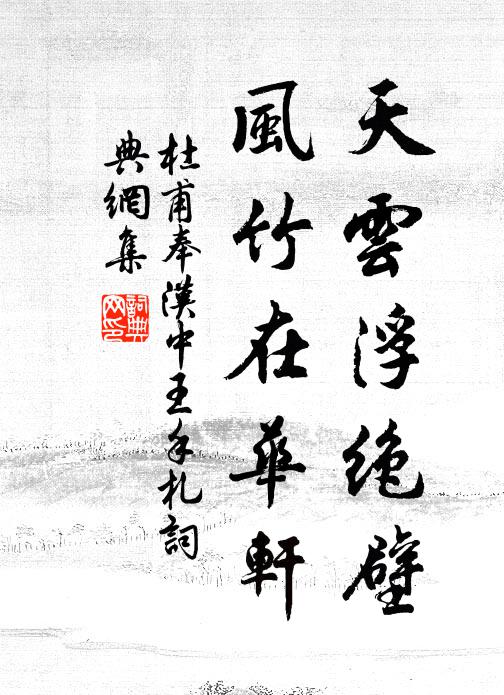 天雲浮絶壁
風竹在華軒
杜甫奉漢中王手札詞
典網集
詞典
网印